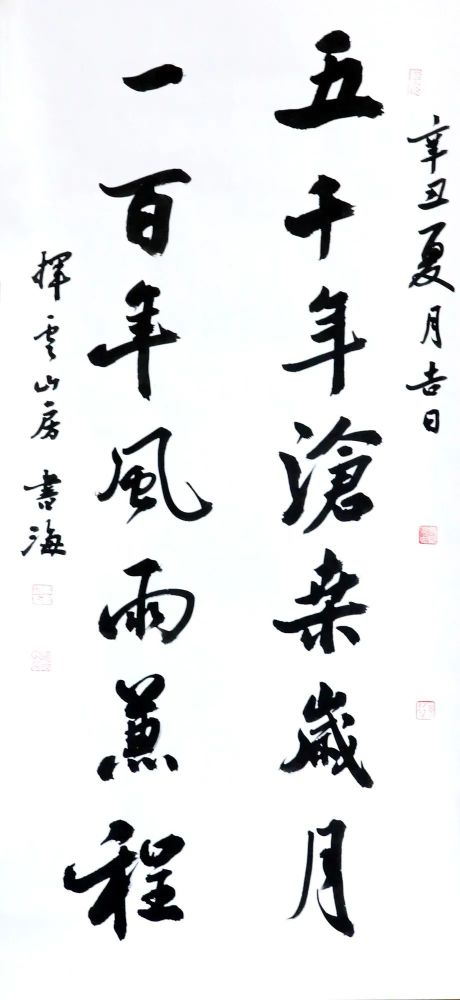 辛丑夏月吉日
五千年滄桑歲月
一百年風雨兼程
揮雲山房 書海